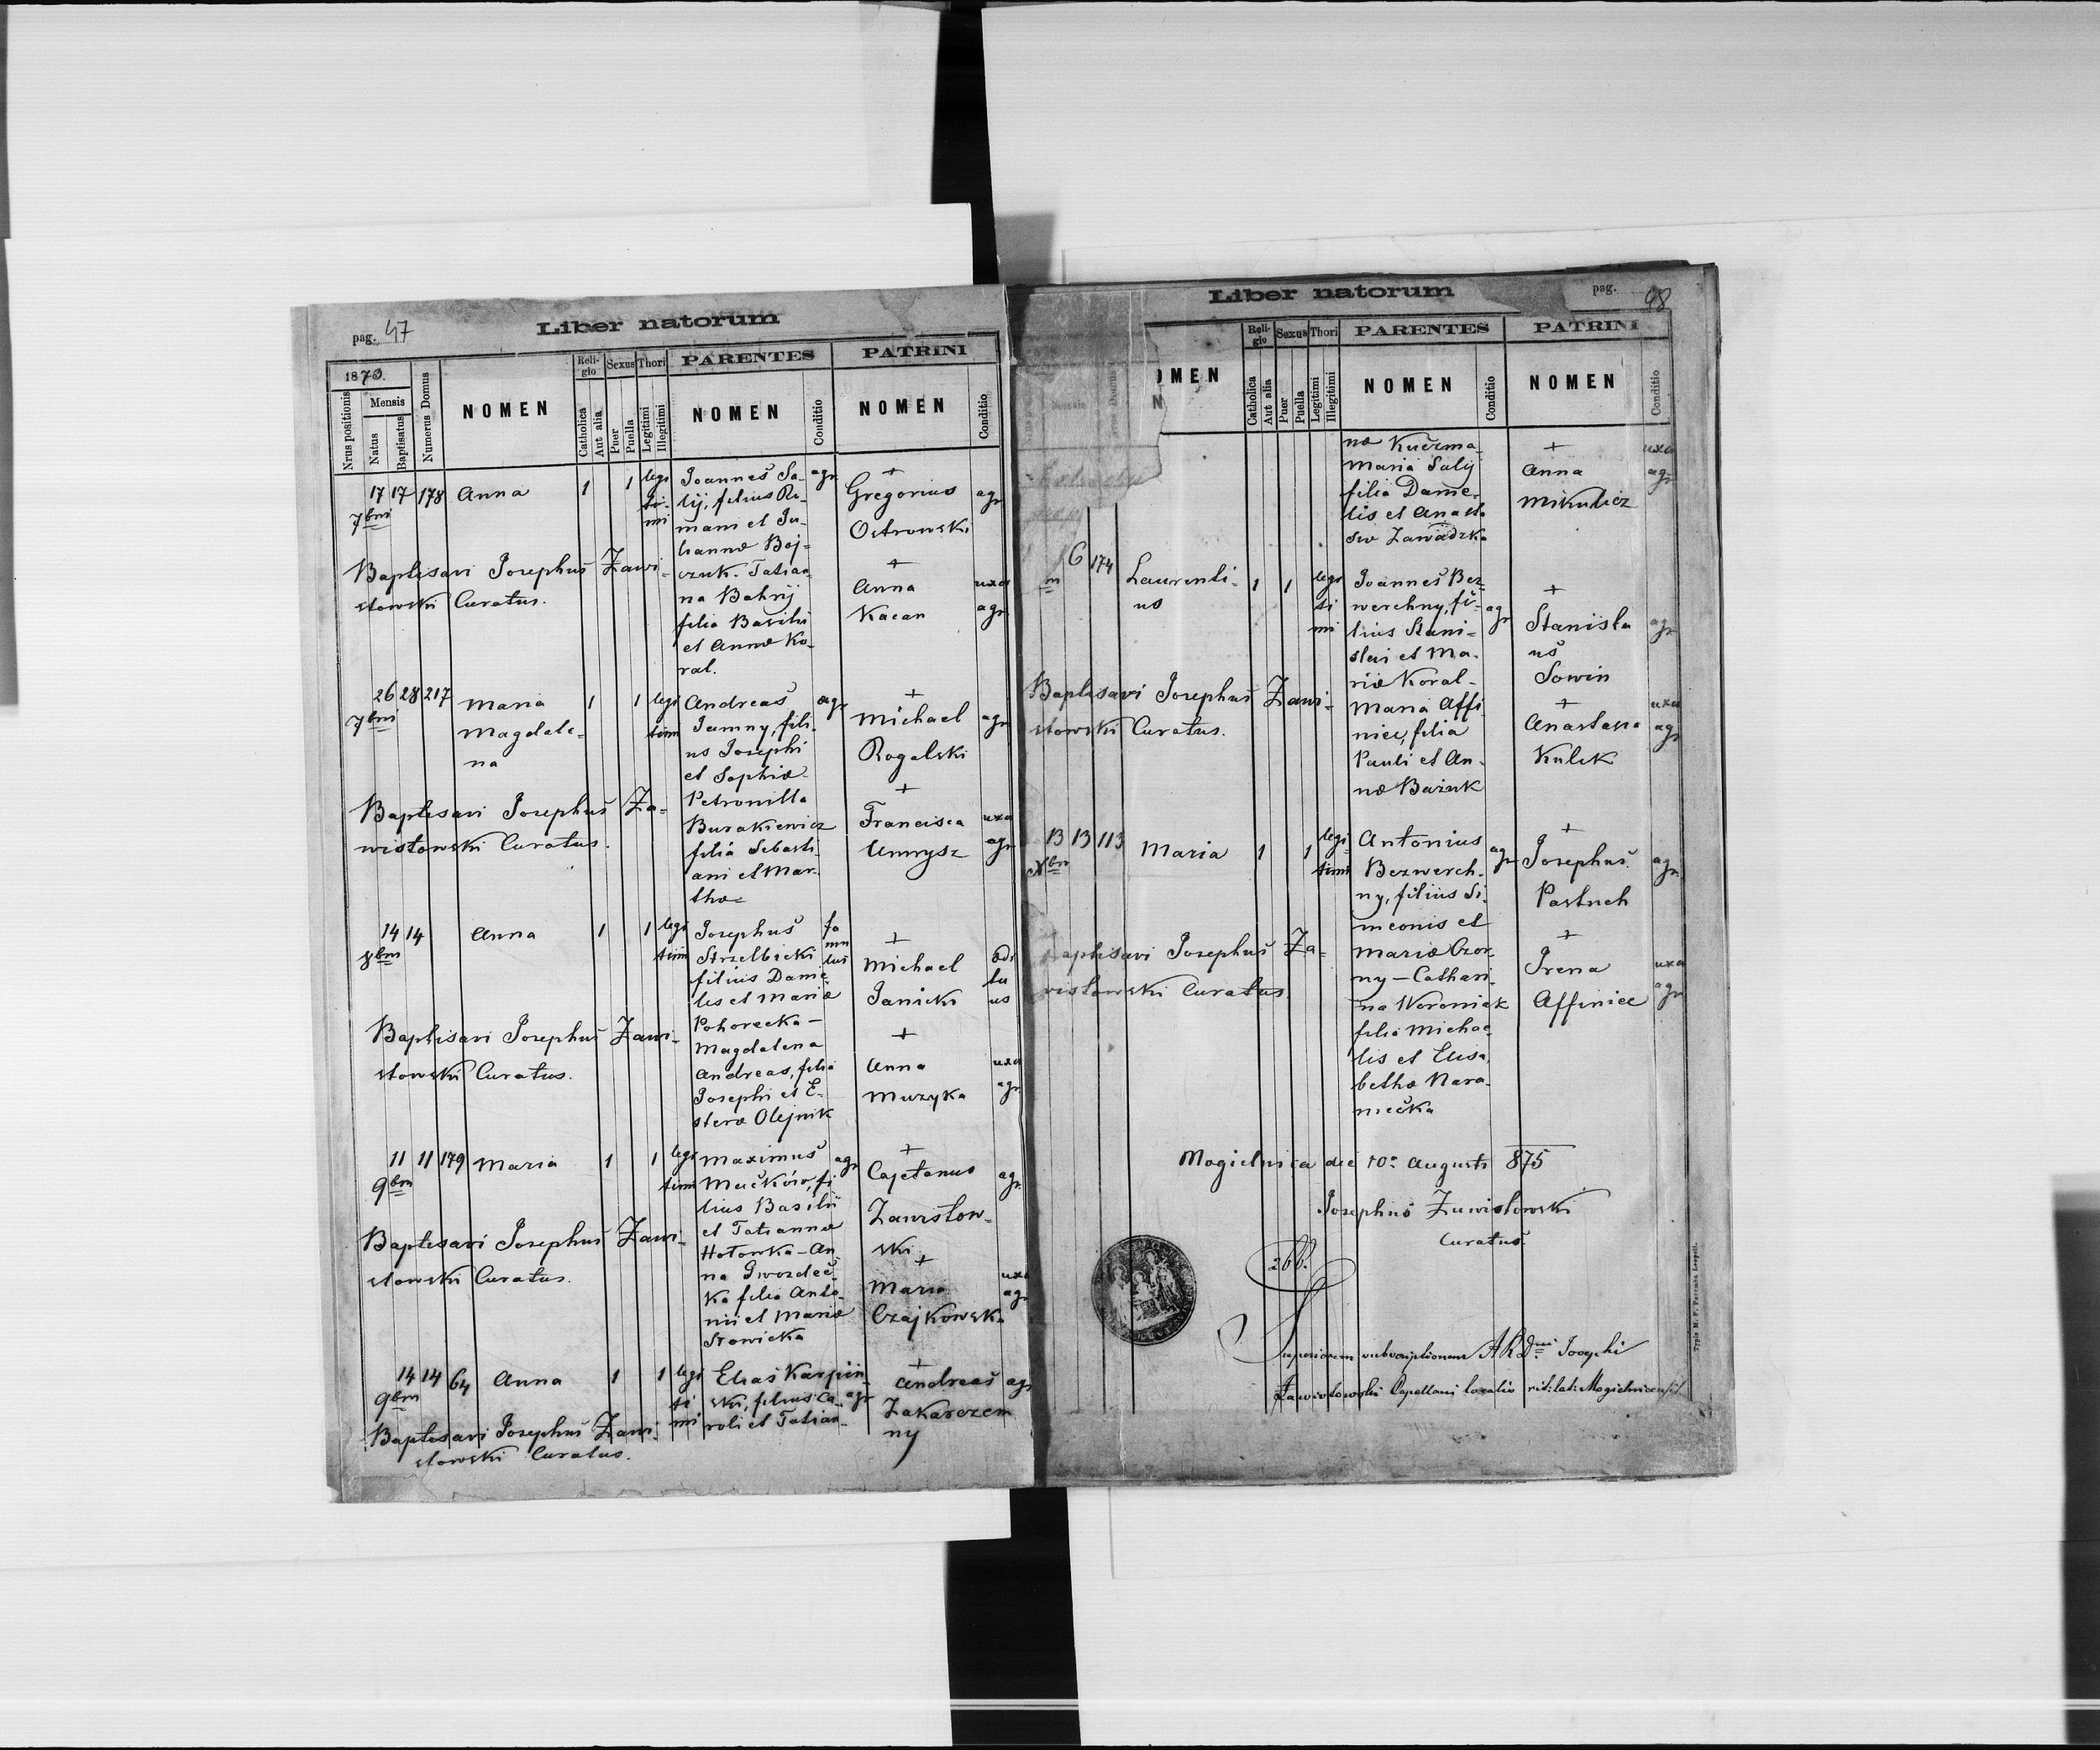 pag. 47
Liber natorum
1870.
Nrus positionis
Mensis
Natus
Baptisatus
Numerus Domus
NOMEN
Reli-
gio
Catholica
Aut alia
Sexus
Puer
Puella
Thori
Legitimi
Illegitimi
PARENTES
NOMEN
Conditio
PATRINI
NOMEN
Conditio
17 17 178 Anna 1 1 legi
7bris
ti-
mi
Joannes Sa-
lij, filius Ro-
mani et Ju-
liannæ Boj-
czuk. Tatian-
na Bahrij
filia Basilii
et Annæ Ko-
ral.
agr
+
Gregorius
Ostrowski
agr
+
Anna
Kacan
uxor
agr
Baptisavi Josephus Zawi-
słowski Curatus.
26 28 217 Maria 1 1 legi
7bris
Magdale-
na
timi
Andreas
Jamny, fili-
us Josephi
et Sophiæ
Petronilla
Burakiewicz
filia Sebasti-
ani et Mar-
thæ
agr
+
Michael
Rogalski
agr
+
Francisca
Unmysz
uxor
agr
Baptisavi Josephus Za-
wisłowski Curatus.
14 14 Anna 1 1 legi
8bris
timi
Josephus
Strzelbicki
filius Danie-
lis et Mariæ
Pohorecka —
Magdalena
Andreas, filia
Josephi et E-
steræ Olejnik
fa
mu
lus
+
Michael
Janicki
ædi
tu
us
+
Anna
Muzyka
uxor
agr
Baptisavi Josephus Zawi-
słowski Curatus.
11 11 179 Maria 1 1 legi
9bris
timi
Maximus
Mućków, fi
lius Basilii
et Tatiannæ
Hołowka — An-
na Gwozdec-
ka filia Anto-
nii et Mariæ
Słowicka
agr
+
Cajetanus
Zawisłow-
ski
agr.
+
Maria
Czajkowska
uxor
agr
Baptisavi Josephus Zawi-
słowski Curatus.
14 14 64 Anna 1 1 legi
9bris
ti
mi
Elias Karpiń-
ski, filius Ca-
roli et Tatian-
agr
+
Andreas
Zakarczem
ny
agr
Baptisavi Josephus Zawi-
słowski Curatus.
Liber natorum
pag. 48
OMEN
Reli-
gio
Catholica
Aut alia
Sexus
Puer
Puella
Thori
Legitimi
Illegitimi
PARENTES
NOMEN
Conditio
PATRINI
NOMEN
Conditio
næ Kuczma
Maria Salij
filia Danie-
lis et Anasta
siæ Zawadzka
+
Anna
Mikulicz
uxor
agr
6 174 Laurenti-
us
1 1 legi
ti
mi
Joannes Bez-
werchny, fi-
lius Stani-
slai et Ma-
riæ Koral —
Maria Affi-
nice, filia
Pauli et An-
næ Bażuk
agr
+
Stanisla
us
Sowin
agr
+
Anastasia
Kulik
uxor
agr
Baptisavi Josephus Zawi-
słowski Curatus.
13 13 113 Maria 1 1 legi-
Xbris
timi
Antonius
Bezwerch-
ny, filius Si-
meonis et
Mariæ Czor-
ny — Cathari-
na Woroniak
filia Michae-
lis et Elisa-
bethæ Nara-
niecka
agr
+
Josephus
Pastuch
agr.
+
Irena
Affinice
uxor
agr
Baptisavi Josephus Za-
wisłowski Curatus
Mogielnica die 10a Augusti 875
Josephus Zawisłowski
Curatus.
266.
Superiorem subscriptionem ARDni Josephi
Zawisłowski Capellani localis rit: lat: Mogielnicensis